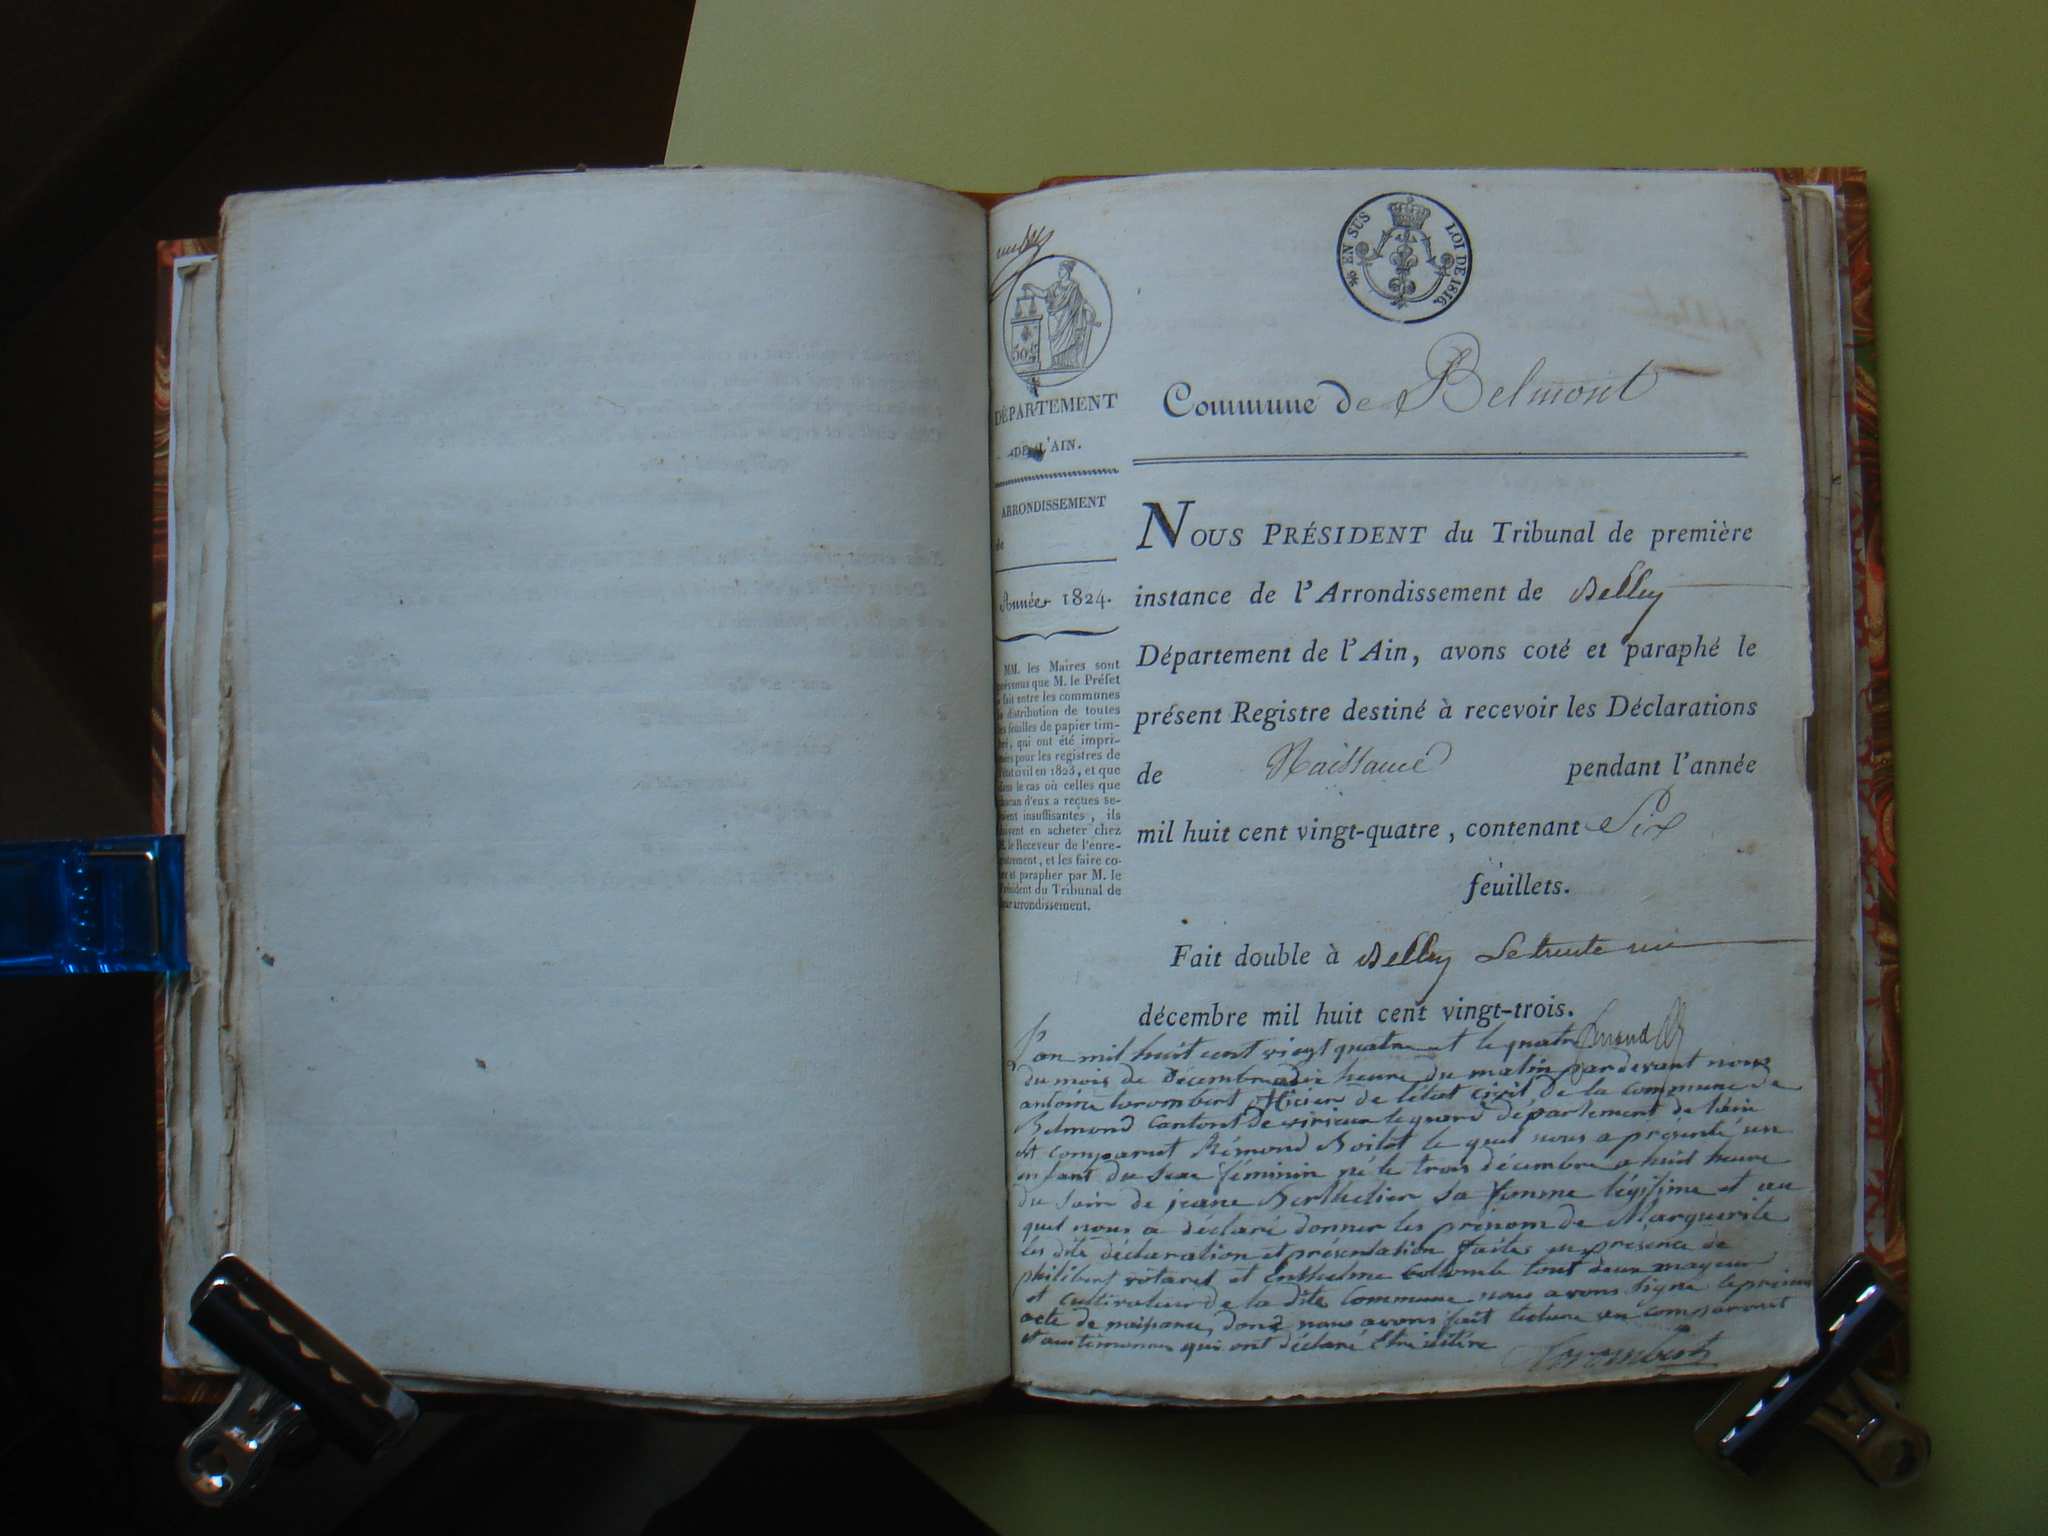 ¾ EN SUS LOI DE 1816.
50 c
DÉPARTEMENT
DE L'AIN.
ARRONDISSEMENT
de
Année 1824.
MM. les Maires sont
prévenus que M. le Préfet
a fait entre les communes
la distribution de toutes
les feuilles de papier tim-
bré, qui ont été impri-
mées pour les registres de
l'état civil en 1823, et que
dans le cas où celles que
chacun d'eux a reçues se-
roient insuffisantes, ils
doivent en acheter chez
M. le Receveur de l'enre-
gistrement, et les faire co-
ter et parapher par M. le
Président du Tribunal de
leur arrondissement.
Commune de Belmont
NOUS PRÉSIDENT du Tribunal de première
instance de l'Arrondissement de Belley
Département de l'Ain, avons coté et paraphé le
présent Registre destiné à recevoir les Déclarations
de Naissance pendant l'année
mil huit cent vingt-quatre, contenant Six
feuillets.
Fait double à Belley Le trente un
décembre mil huit cent vingt-trois.
L'an mil huit cent vingt quatre et le quatre
du mois de Décembre a dix heure du matin pardevant nous
antoine Carombert officier de l'état civil de la commune de
Belmond Canton de virieux le grand département de l'ain
est comparut Rémond Boilot le quel nous a présenté un
enfant du sexe féminin né le trois décembre a huit heure
du soir de jeane Berthelier sa femme légitime et au
quel nous a déclaré donner les prénom de Marguerite
les dite déclaration et présentation faites en presence de
philibert vétaret et Enthelme Collomb tout deux mayeur
et cultivateur de la dite Commune nous avons signé le présent
acte de naisance, dont nous avons fait lecture au comparant
et aux témoins qui ont déclaré Etre ilitére
Carombert